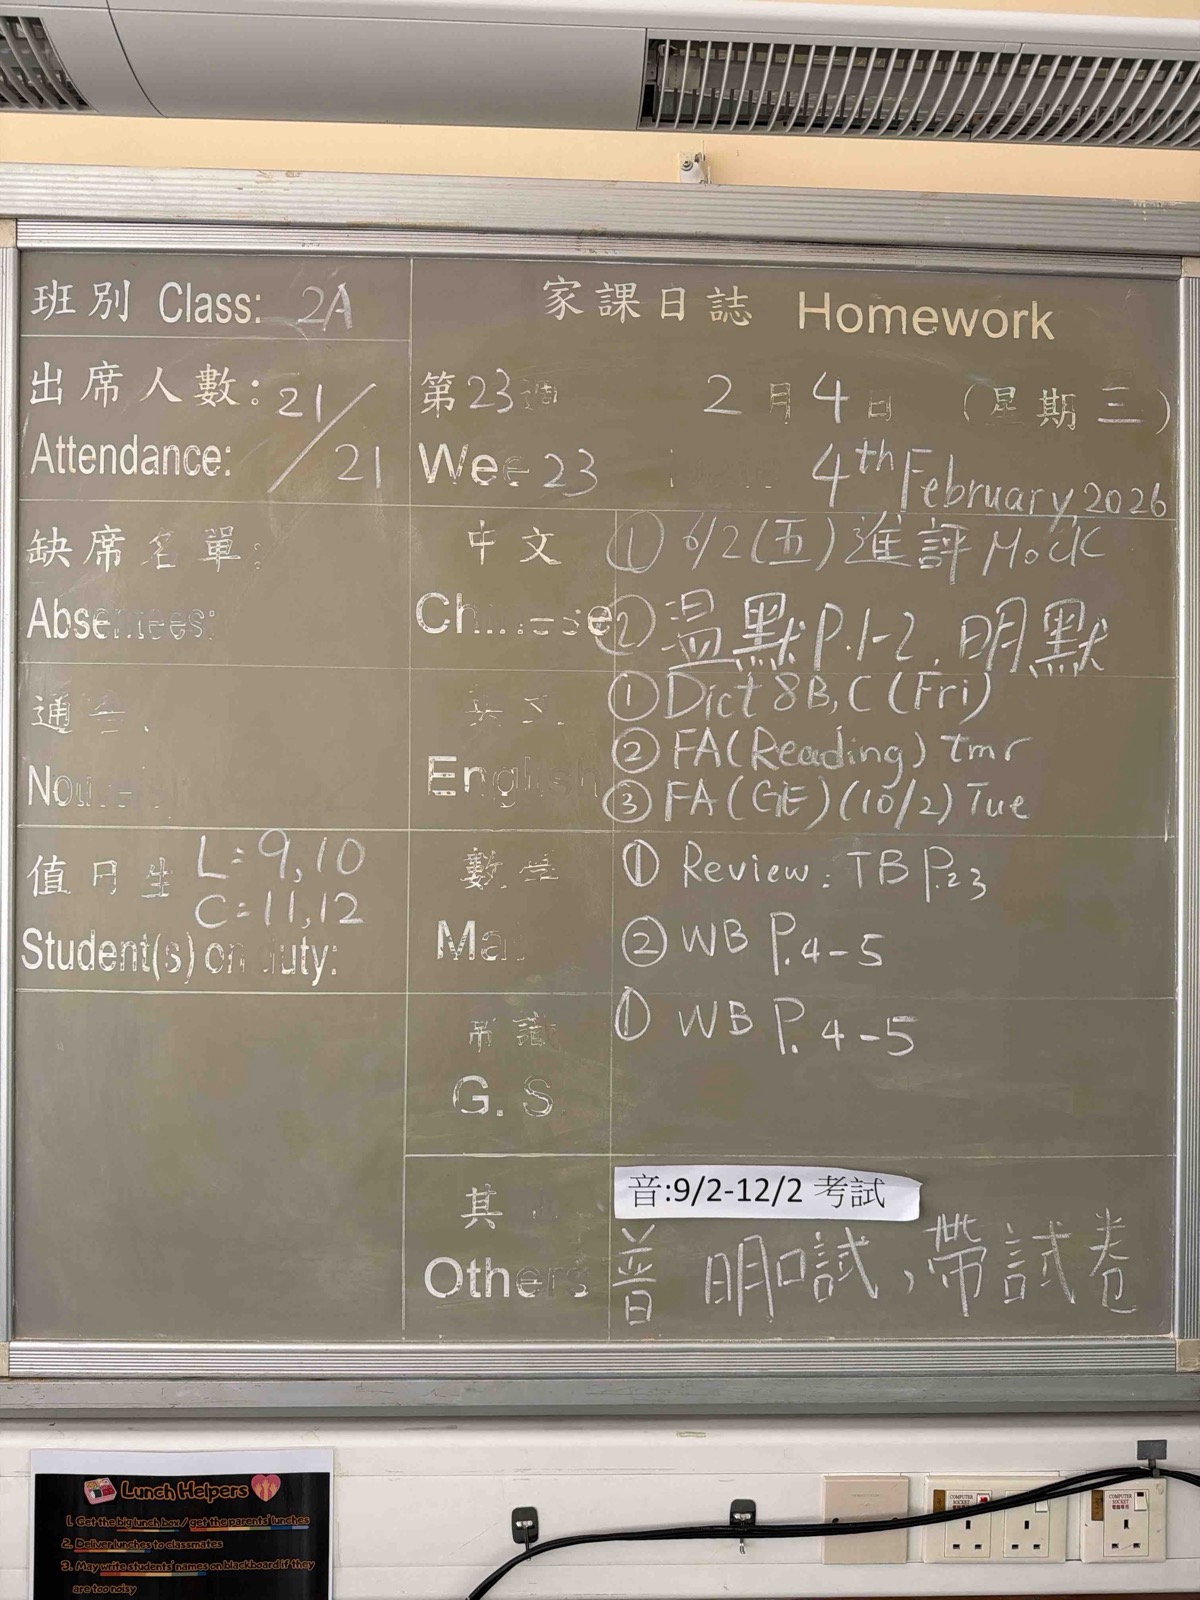 班別 Class: 2A
家課日誌 Homework
出席人數: 21/21
Attendance:
第23週 2月4日 (星期三)
Wee 23 4th February, 2026
缺席名單:
Absentees:
中文
Chinese
① 6/2(五)進評Mock
② 溫默P.1-2, 明默
通告:
英文
English
① Dict 8B, C (Fri)
② FA (Reading) tmr
③ FA (GE) (10/2) Tue
值日生 L: 9, 10
C: 11, 12
Student(s) on duty:
數學
Ma
① Review: TB P.23
② WB P.4-5
常識
G. S
① WB P.4-5
其他
Others
音:9/2-12/2 考試
普 明口試,帶試卷
Lunch Helpers
1. Get the big lunch box / get the parents' lunches
2. Deliver lunches to classmates
3. May write students' names on blackboard if they
are too noisy
COMPUTER
SOCKET
電腦專用
COMPUTER
SOCKET
電腦專用